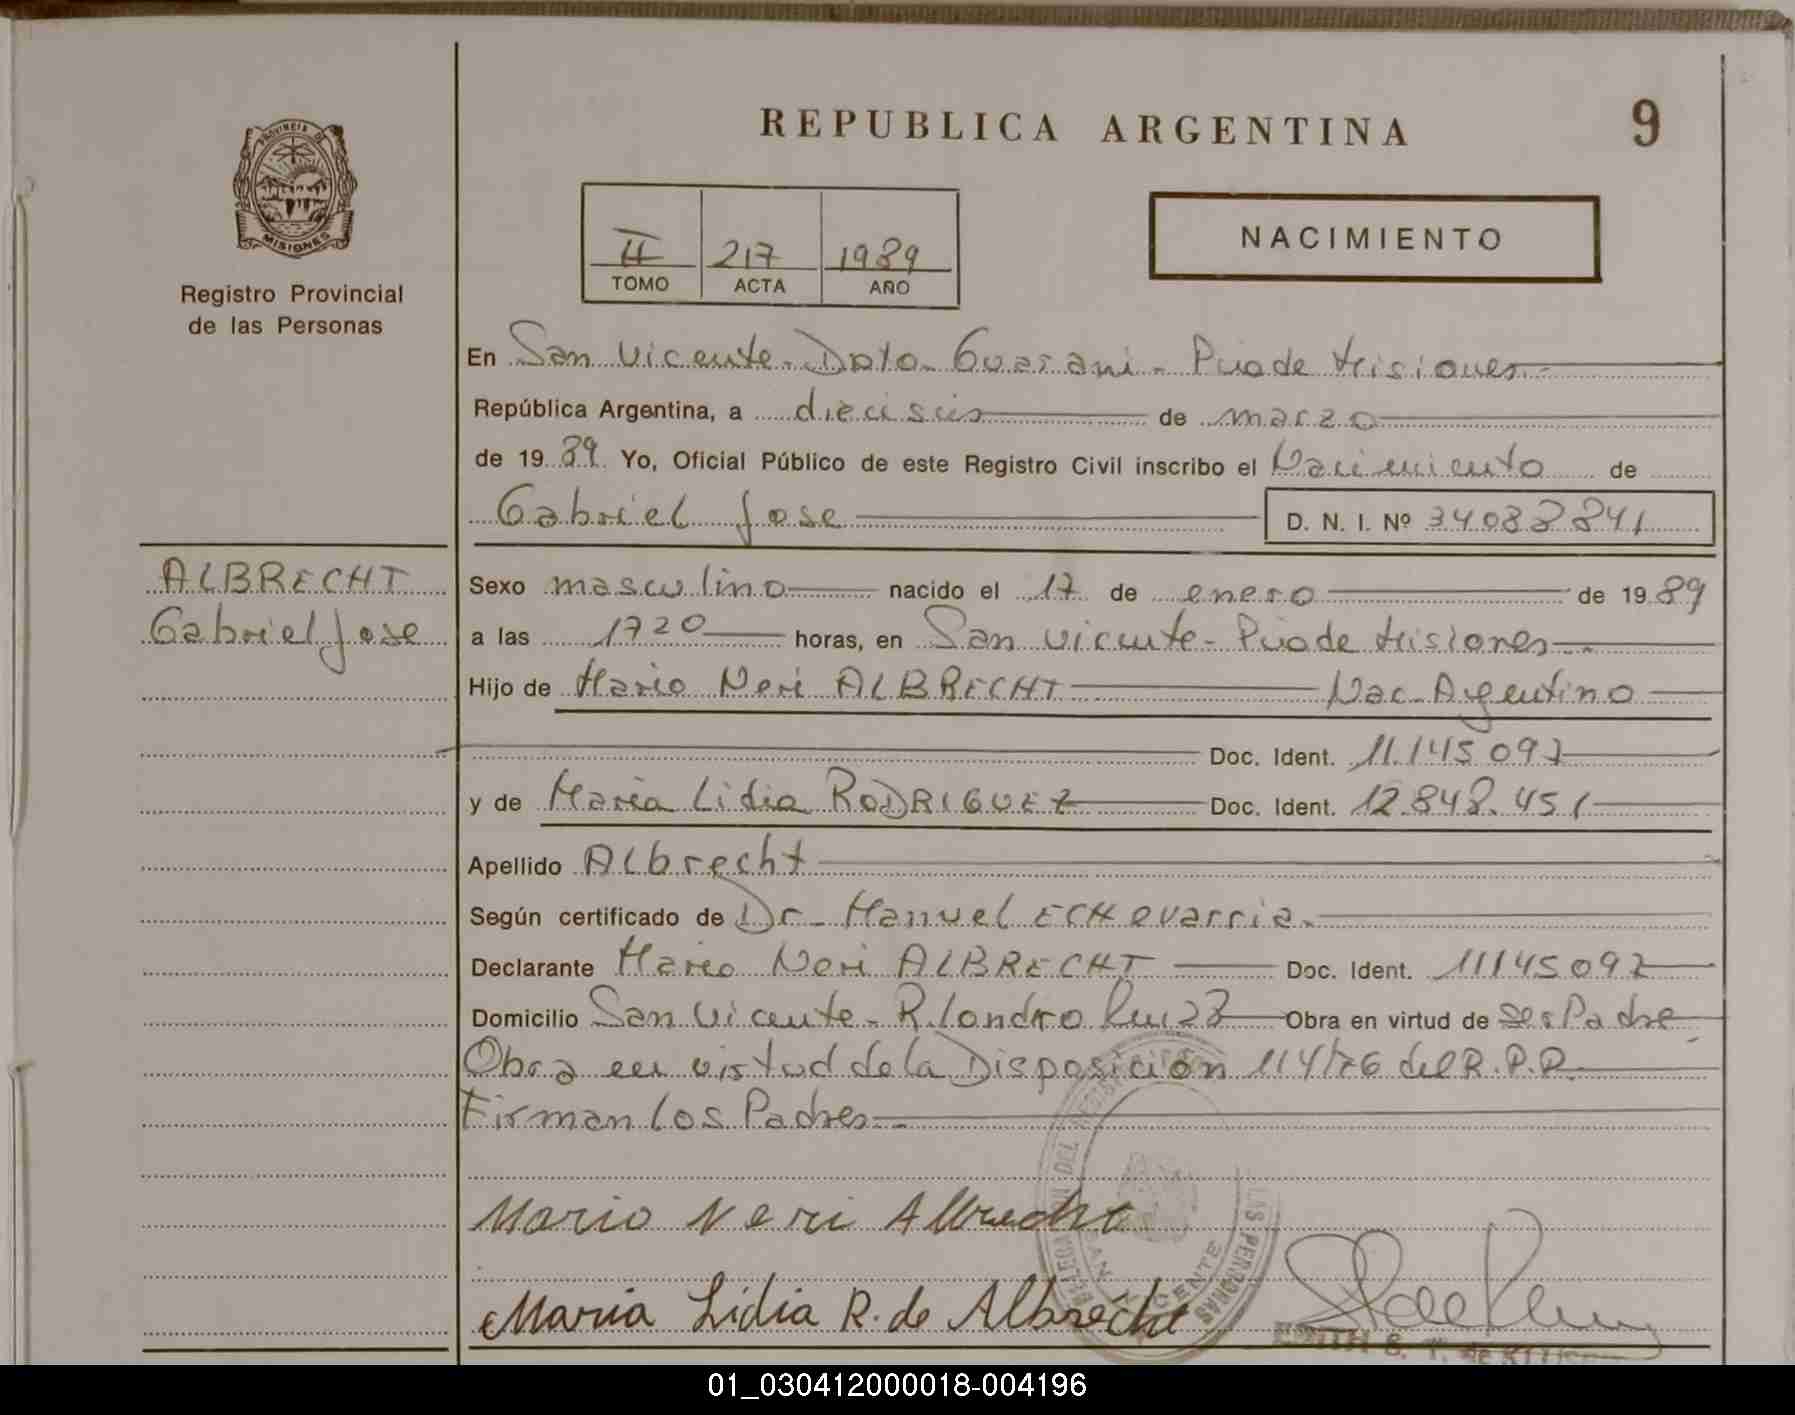 REPUBLICA ARGENTINA
9
PROVINCIA DE
MISIONES
Registro Provincial
de las Personas
II 217 1989
TOMO ACTA AÑO
NACIMIENTO
En San Vicente - Dpto - Guarani - Pcia de Misiones -
República Argentina, a dieciseis de marzo
de 1989 Yo, Oficial Público de este Registro Civil inscribo el Nacimiento de
Gabriel Jose D. N. I. Nº 34088841
ALBRECHT
Gabriel Jose
Sexo masculino nacido el 17 de enero de 1989
a las 1720 horas, en San Vicente - Pcia de Misiones -
Hijo de Mario Neri ALBRECHT Nac. Argentino
Doc. Ident. 11.145 097
y de Maria Lidia RODRIGUEZ Doc. Ident. 12.848.451
Apellido Albrecht
Según certificado de Dr - Manuel ECHEvarria -
Declarante Mario Neri ALBRECHT Doc. Ident. 11145097
Domicilio San Vicente - Obra en virtud de ser Padre
Obra en virtud de la Disposición 114/76 del R.P.P.
Firman los Padres -
Mario Neri Albrecht
Maria Lidia R. de Albrecht
DELEGACION DEL REGISTRO
LAS PERSONAS
SAN VICENTE
01_030412000018-004196